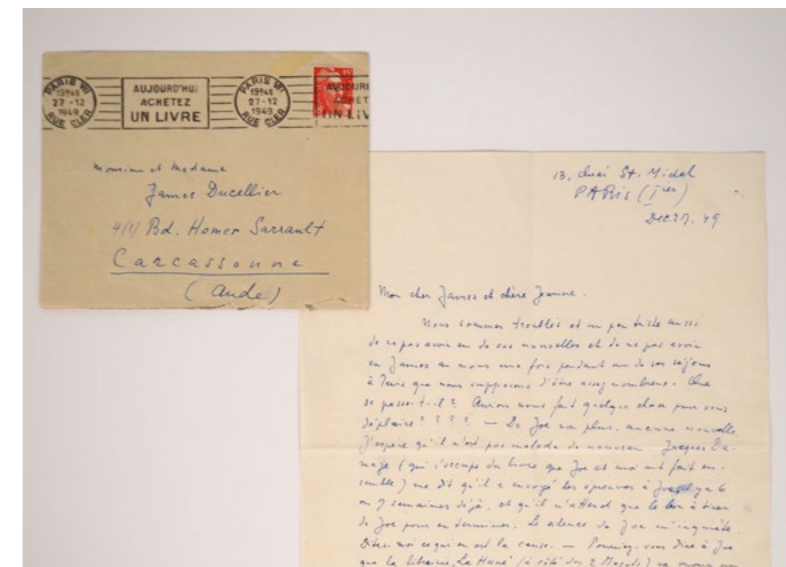 PARIS VII
19H45
27-12
1949
RUE CLER
AUJOURD'HUI
ACHETEZ
UN LIVRE
PARIS VII
19H45
27-12
1949
RUE CLER
Monsieur et Madame
James Ducellier
41 Bd. Homer Sarrault
Carcassonne
(Aude)
13, Quai St. Michel
PARIS (Ier)
Dec. 27. 49
Mon cher James et chère Jeanne.
Nous sommes troublés et un peu triste aussi
de ne pas avoir eu de vos nouvelles et de ne pas avoir
vu James au moins une fois pendant un de ses séjours
à Paris que nous supposons d'être assez nombreux. Que
se passe-t-il? Aurions nous fait quelque chose pour vous
déplaire???? — De Joe non plus, aucune nouvelle.
J'espère qu'il n'est pas malade de nouveau. Jacques Da-
mase (qui s'occupe du livre que Joe et moi ont fait en-
semble) me dit qu'il a envoyé les épreuves à Joe il y a 6
ou 7 semaines déjà, et qu'il n'attend que le bon à tirer
de Joe pour en terminer. Le silence de Joe m'inquiète.
Dites-moi ce qui en est la cause. — Pourriez-vous dire à Joe
que la librairie La Hune (à côté des 2 Magots)